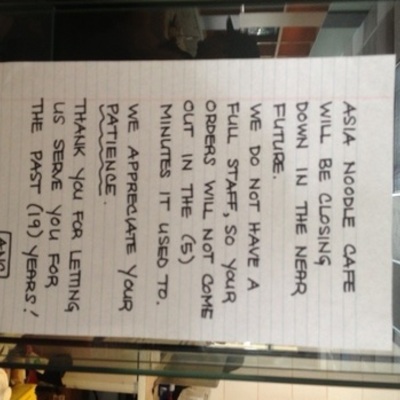 ASIA NOODLE CAFE
WILL BE CLOSING
DOWN IN THE NEAR
FUTURE.
WE DO NOT HAVE A
FULL STAFF, SO YOUR
ORDERS WILL NOT COME
OUT IN THE (5)
MINUTES IT USED TO.
WE APPRECIATE YOUR
PATIENCE.
THANK YOU FOR LETTING
US SERVE YOU FOR
THE PAST (19) YEARS!
ANC